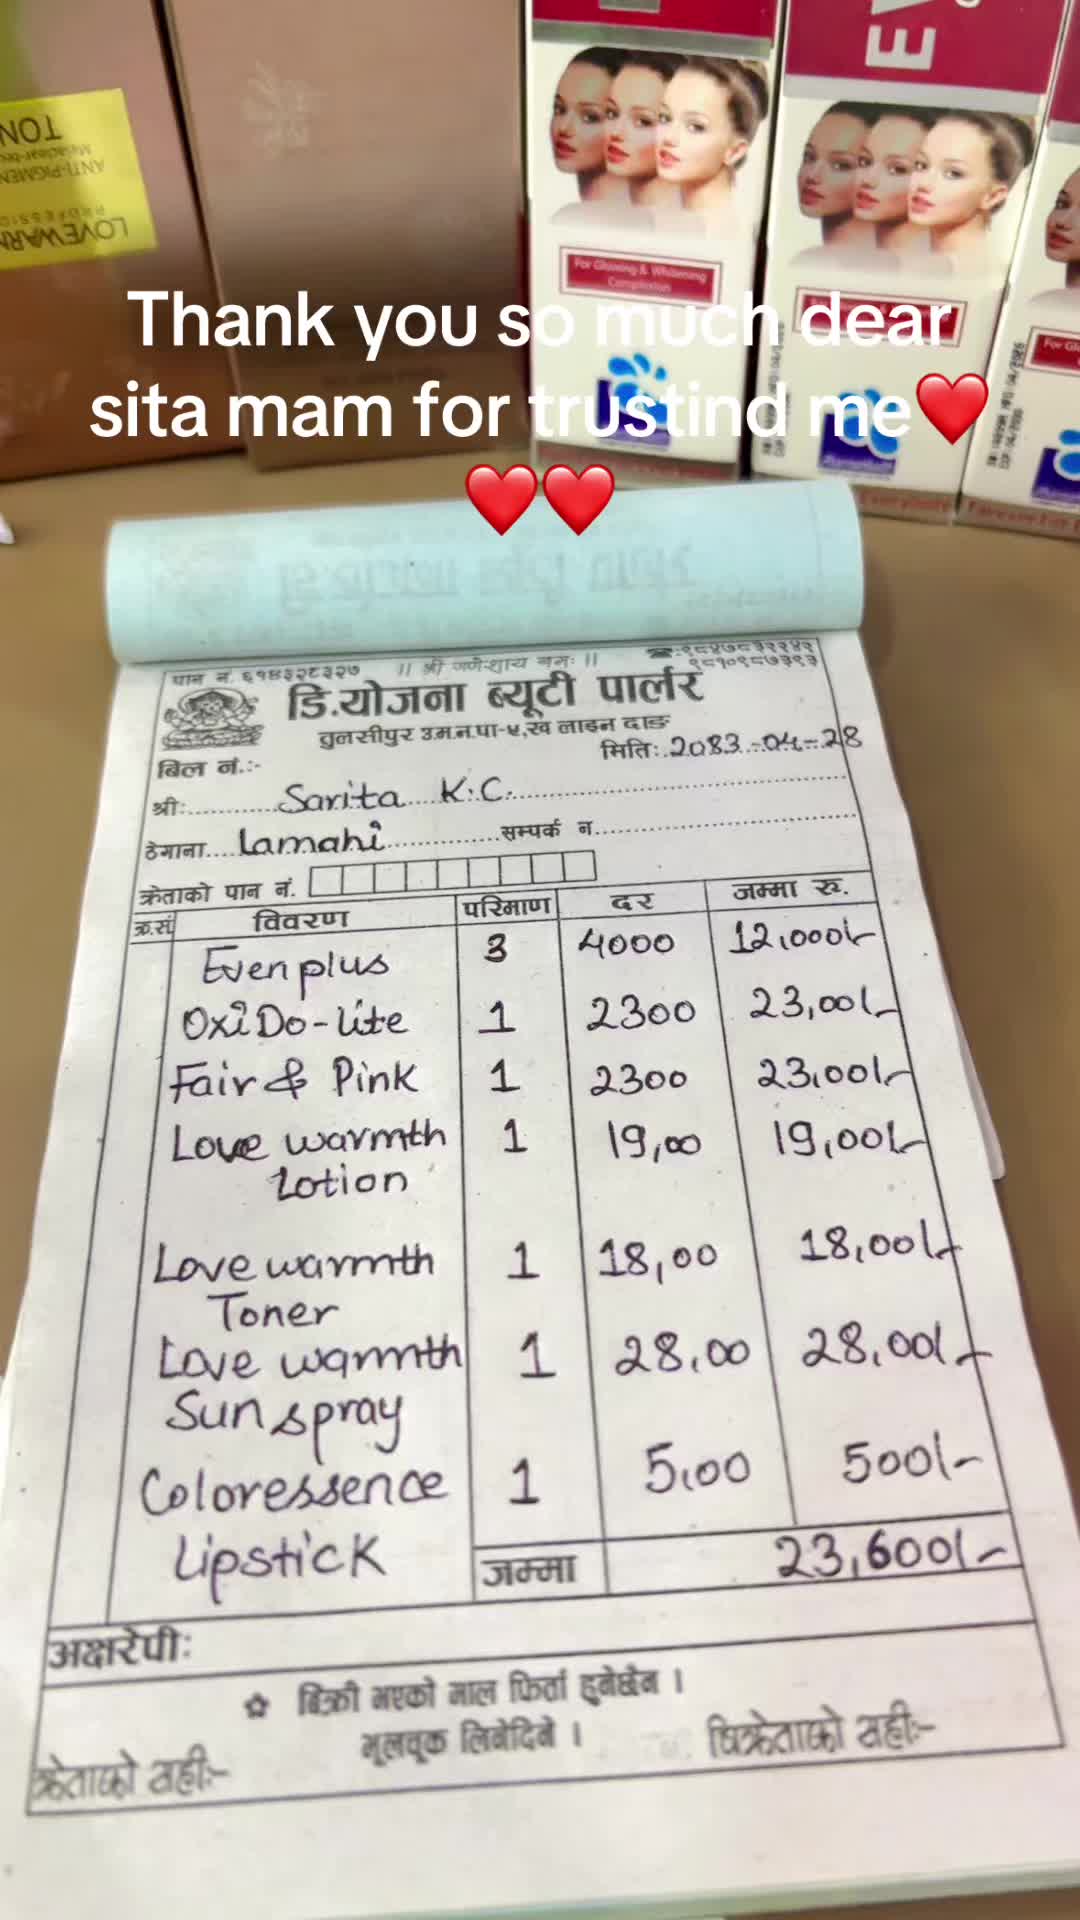 TON
ANTI-PIGMEN
PROFESSIO
LOVEWARM
E
For Glowing & Whitening
Complexion
Thank you so much dear
sita mam for trustind me❤️
❤️❤️
पान नं. ६१४३२८३२७ ॥ श्री गणेशाय नमः ॥ ☎:९८४७८३२२४२
९८१०९८७३९३
डि.योजना ब्यूटी पार्लर
तुलसीपुर उ.म.न.पा-५,ख लाइन दाङ
बिल नं.:- मिति: 2083-04-28
श्री: Sarita K.C.
ठेगाना Lamahi सम्पर्क न.
क्रेताको पान नं.
क्र.सं विवरण परिमाण दर जम्मा रु.
Evenplus 3 4000 12,000/-
OxiDo-lite 1 2300 23,00/-
Fair & Pink 1 2300 23,00/-
Love warmth 1 19,00 19,00/-
Lotion
Love warmth 1 18,00 18,00/-
Toner
Love warmth 1 28,00 28,00/-
Sun spray
Coloressence 1 5,00 500/-
Lipstick
जम्मा 23,600/-
अक्षरेपी:
बिक्री भएको माल फिर्ता हुनेछैन ।
भूलचूक लिनेदिने ।
क्रेताको सही:- विक्रेताको सही:-